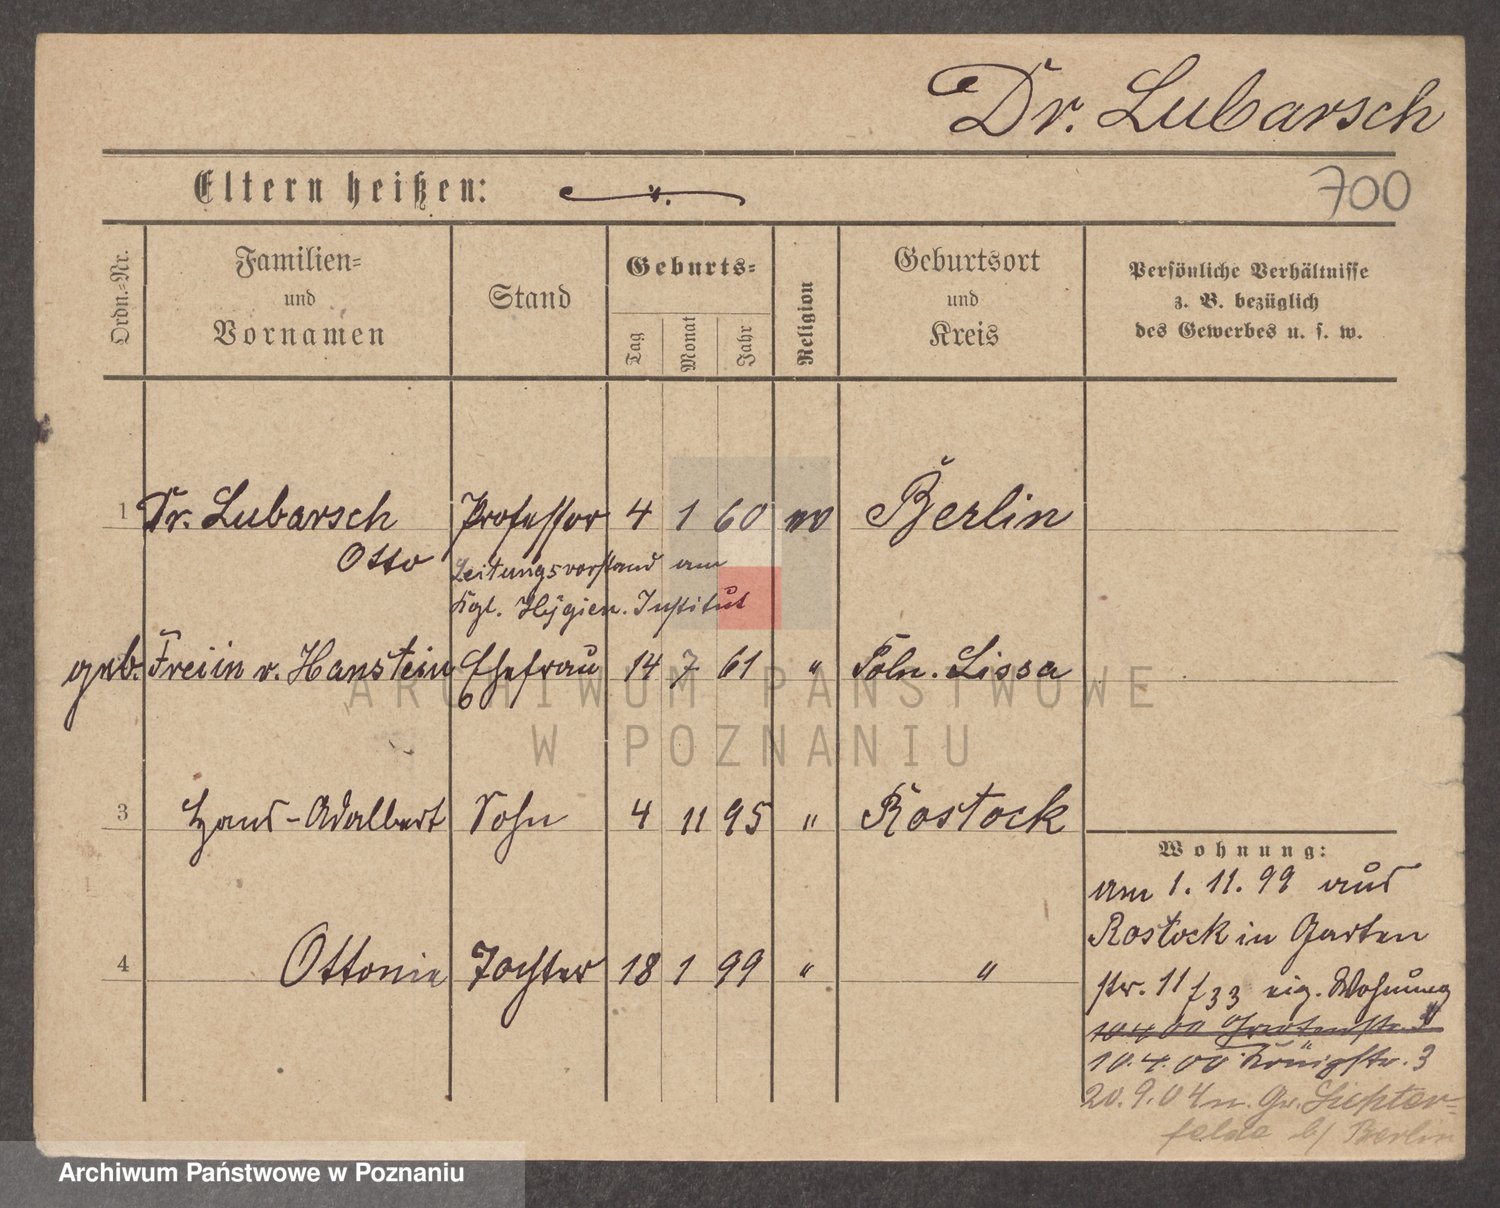 Dr. Lubarsch
Eltern heißen:
700
Ordn.-Nr.
Familien-
und
Vornamen
Stand
Geburts-
Tag
Monat
Jahr
Religion
Geburtsort
und
Kreis
Persönliche Verhältnisse
z. B. bezüglich
des Gewerbes u. s. w.
1 Dr. Lubarsch Professor 4 1 60 ev Berlin
Otto Leitungsvorstand am
Kgl. Hygien. Institut
geb. Freiin v. Hanstein Ehefrau 14 7 61 " Poln. Lissa
ARCHIWUM PAŃSTWOWE
W POZNANIU
3 Hans-Adalbert Sohn 4 11 95 " Rostock
4 Ottonie Tochter 18 1 99 " "
Wohnung:
am 1. 11. 99 aus
Rostock in Garten
str. 11 f 33 eig. Wohnung
10.4.00 Gartenstr.
10.4.00 Königstr. 3
20.9.04 n. Gr. Lichter-
felde b/ Berlin
Archiwum Państwowe w Poznaniu